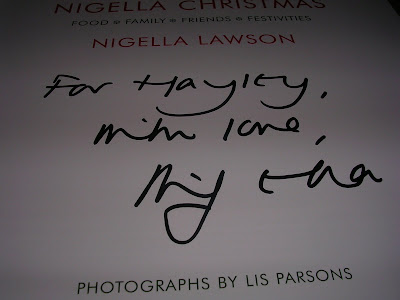 NIGELLA CHRISTMAS
FOOD • FAMILY • FRIENDS • FESTIVITIES
NIGELLA LAWSON
For Hayley,
with love,
Nigella
PHOTOGRAPHS BY LIS PARSONS